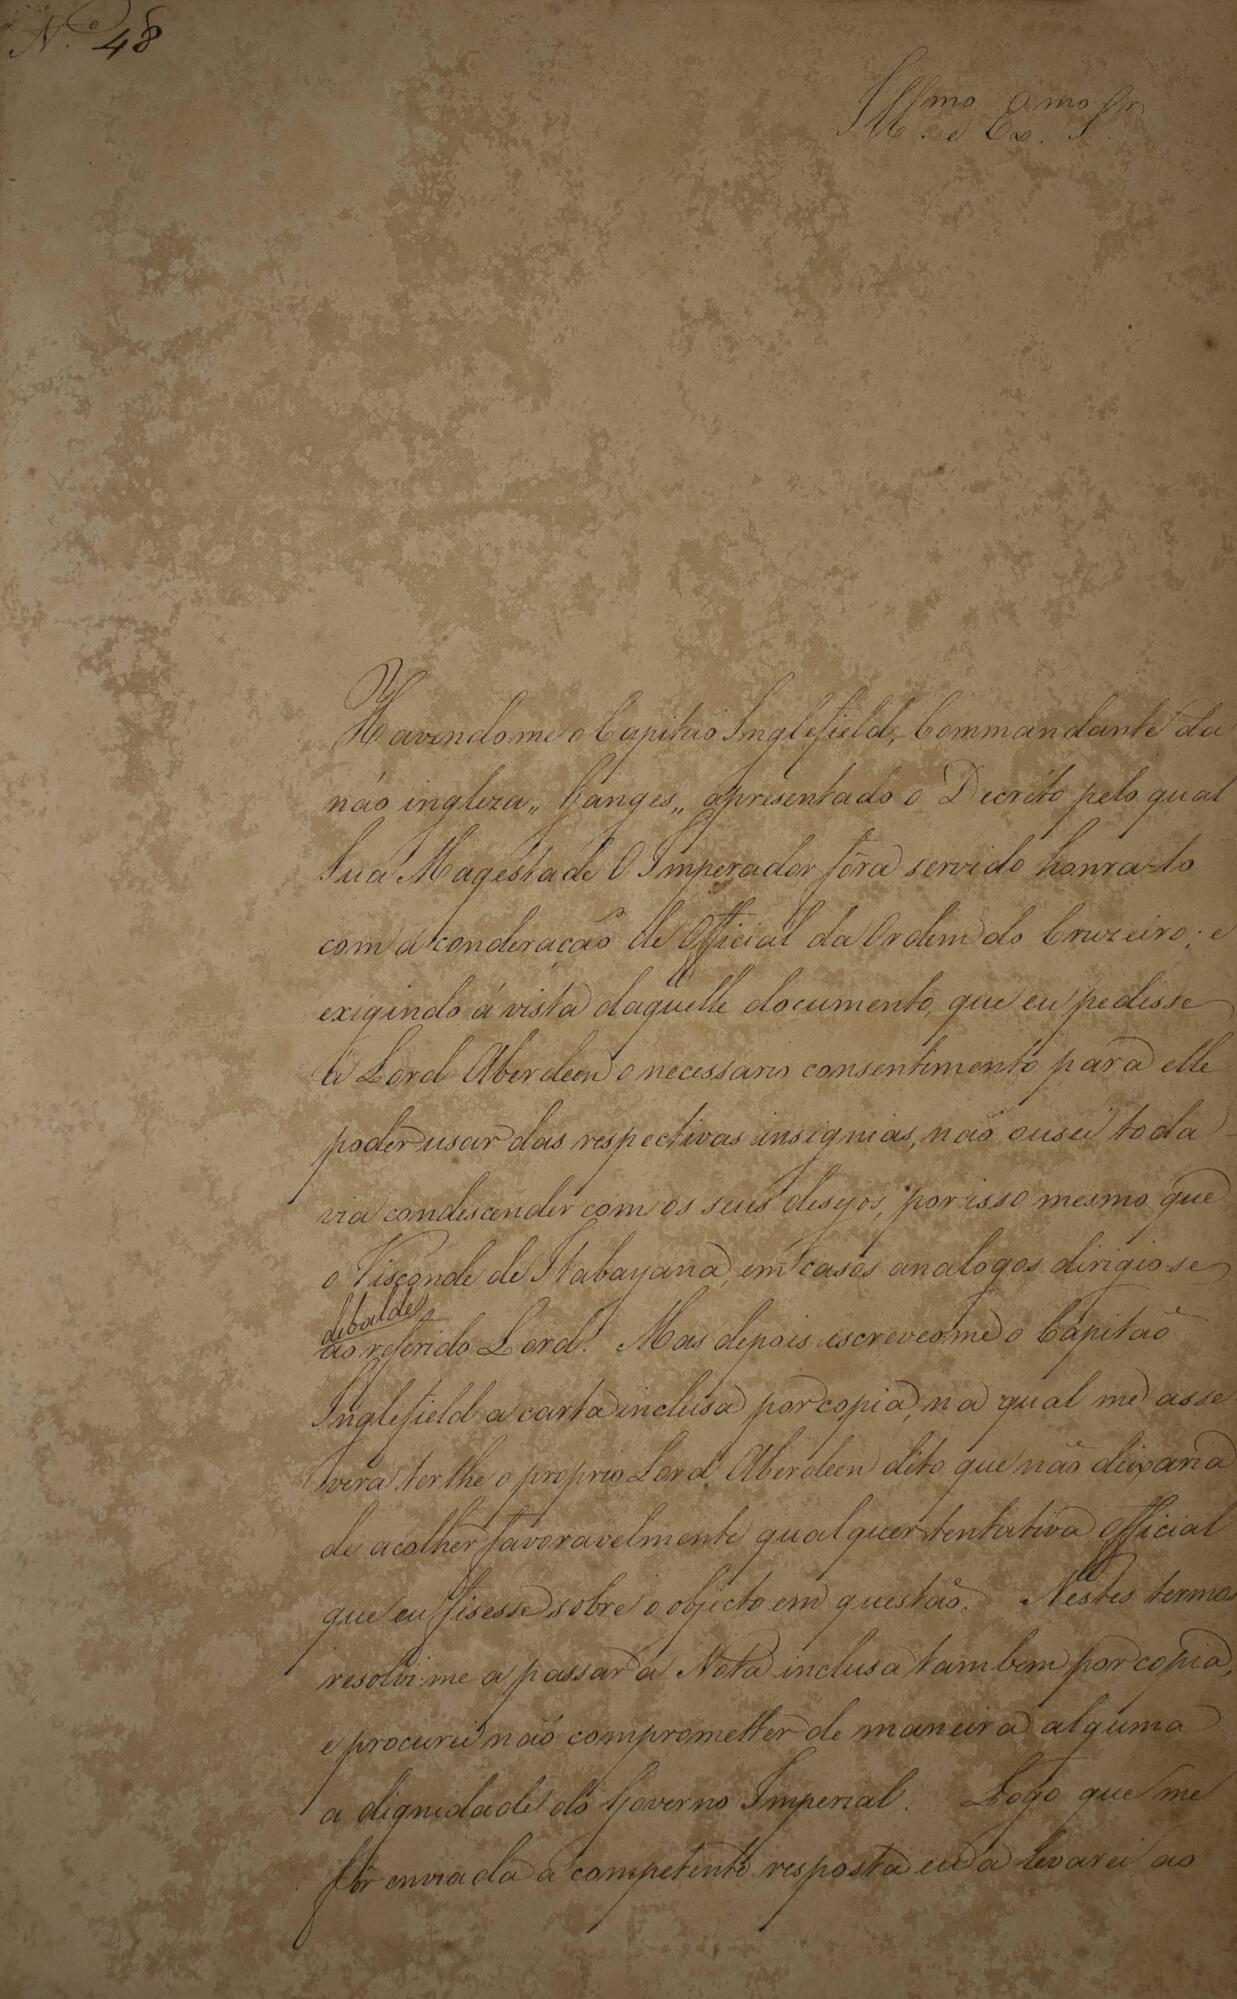 N.º 48
Ill.mo e Ex.mo Sr.
Havendome o Capitão Inglefield, Commandante da
náo ingleza „ Ganges „ apresentado o Decreto pelo qual
Sua Magestade O Imperador fôra servido honra-lo
com a conderação de Official da Ordem do Cruzeiro; e
exigindo á vista daquelle documento, que eu pedisse
a Lord Aberdeen o necessario consentimento para elle
poder usar das respectivas insignias, não ousei toda-
via condescender com os seus desejos, por isso mesmo que
o Visconde de Itabayana, em casos analogos dirigio-se
debalde
ao referido Lord. Mas depois escreveo me o Capitão
Inglefield a carta inclusa por copia, na qual me asse
vera ter lhe o proprio Lord Aberdeen dito que não deixaria
de acolher favoravelmente qualquer tentativa official
que eu fisesse sobre o objecto em questão. Nestes termos
resolvi-me a passar a Nota inclusa tambem por copia,
e procurei não comprometter de maneira alguma
a dignidade do Governo Imperial. Logo que me
fôr enviada a competente resposta eu a levarei ao